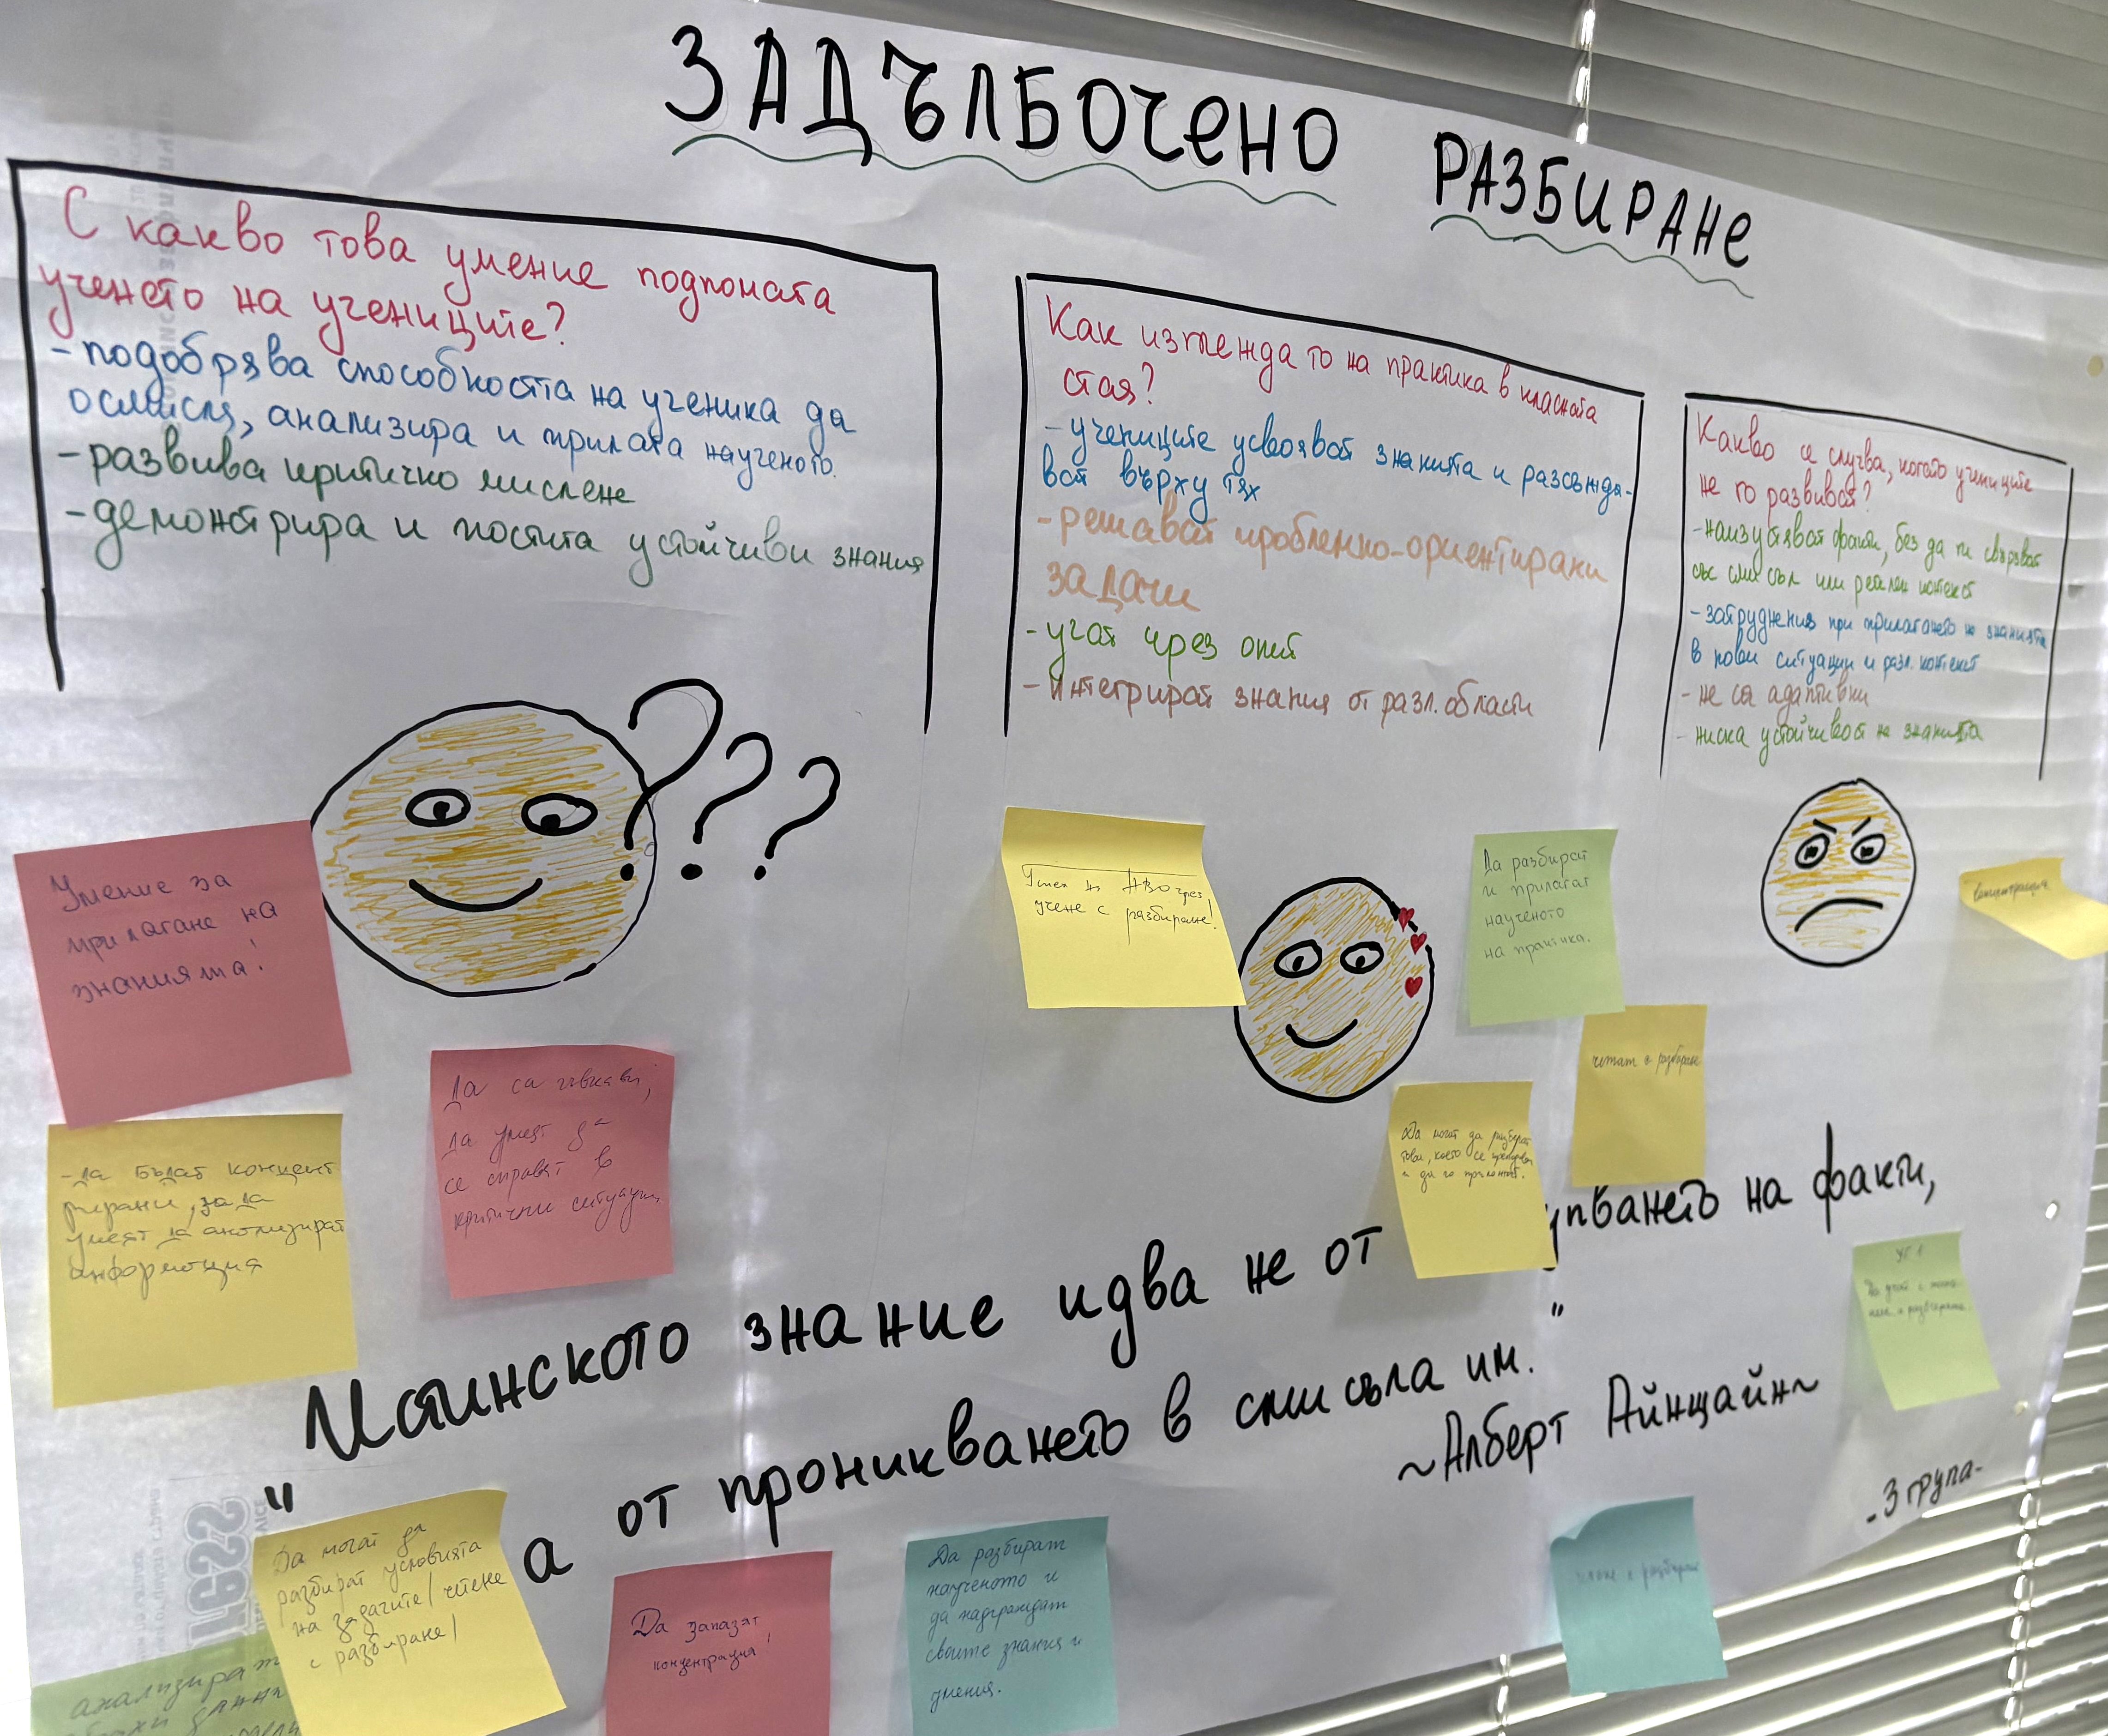 ЗАДЪЛБОЧЕНО РАЗБИРАНЕ
С какво това умение подпомага
ученето на учениците?
- подобрява способността на ученика да
осмисля, анализира и прилага наученото.
- развива критично мислене
- демонстрира и постига устойчиви знания
Как изглежда то на практика в класната
стая?
- учениците усвояват знанията и разсъжда-
ват върху тях
- решават проблемно-ориентирани
задачи
- учат чрез опит
- интегрират знания от разл. области
Какво се случва, когато учениците
не го развиват?
- наизустяват факти, без да ги свързват
със смисъл или реален контекст
- затруднения при прилагането на знанията
в нови ситуации и разл. контекст
- не са адаптивни
- ниска устойчивост на знанията
???
Умение за
прилагане на
знанията!
Да са гъвкави,
да умеят да
се справят в
критични ситуации
- да бъдат концент
рирани, за да
умеят да анализират
информация
Успех на НВО чрез
учене с разбиране!
Да разбират
и прилагат
наученото
на практика.
концентрация
четат с разбиране
Да могат да разберат
това, което се преподава
и да го прилагат.
"Истинското знание идва не от упването на факти,
а от проникването в смисъла им."
~Алберт Айнщайн~
- 3 група -
Да могат да
разбират условията
на задачите/четене
с разбиране/
Да запазят
концентрация!
Да разбират
наученото и
да надграждат
своите знания и
умения.
с разбиране
анализират
данни